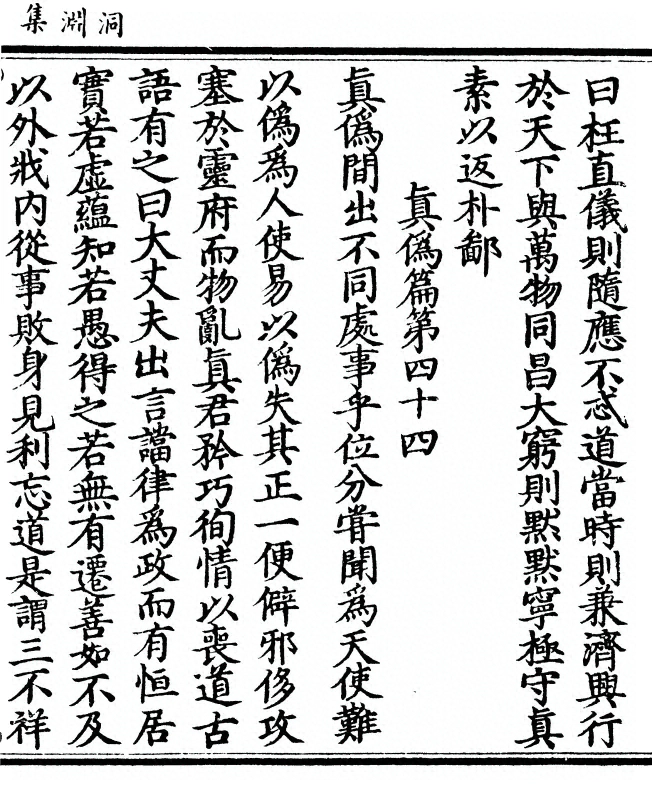 洞淵集
曰枉直儀則隨應不忒道當時則兼濟興行
於天下與萬物同昌大窮則默默寧極守真
素以返朴鄙
真僞篇第四十四
真僞間出不同處事乎位分嘗聞為天使難
以僞為人使易以僞失其正一便僻邪侈攻
塞於靈府而物亂真君矜巧徇情以喪道古
語有之曰大丈夫出言讜律為政而有恒居
實若虛蘊知若愚得之若無有遷善如不及
以外戕内從事敗身見利忘道是謂三不祥